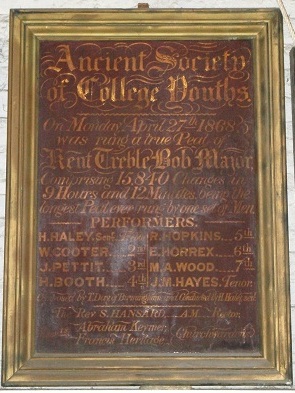 Ancient Society
of College Youths.
On Monday April 27th 1868
was rung a true Peal of
Kent Treble Bob Major
Comprising 15840 Changes in
9 Hours and 12 Minutes, being the
longest Peal ever rung by one set of Men
PERFORMERS.
H. HALEY. Senr R. HOPKINS 5th
W. COOTER 2nd E. HORREX 6th
J. PETTIT 3rd M. A. WOOD 7th
H. BOOTH 4th J. M. HAYES Tenor
Composed by T. Day, Birmingham and Conducted by H. Haley
The Rev S. HANSARD A.M. Rector
Abraham Keymer
Francis Heritage Churchwardens